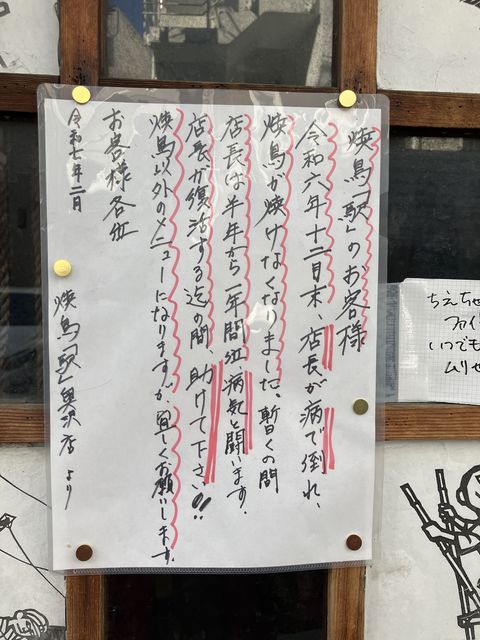 焼鳥「駅」のお客様
令和六年十二月末、店長が病で倒れ、
焼鳥が焼けなくなりました。暫くの間
店長は半年から一年間位病気と闘います。
店長が復活する迄の間、助けて下さい!!
焼鳥以外のメニューになりますが宜しくお願いします。
お客様各位
令和七年二月
焼鳥「駅」奥沢店より
ちえちゃ
ファイ
いつでも
ムリせ